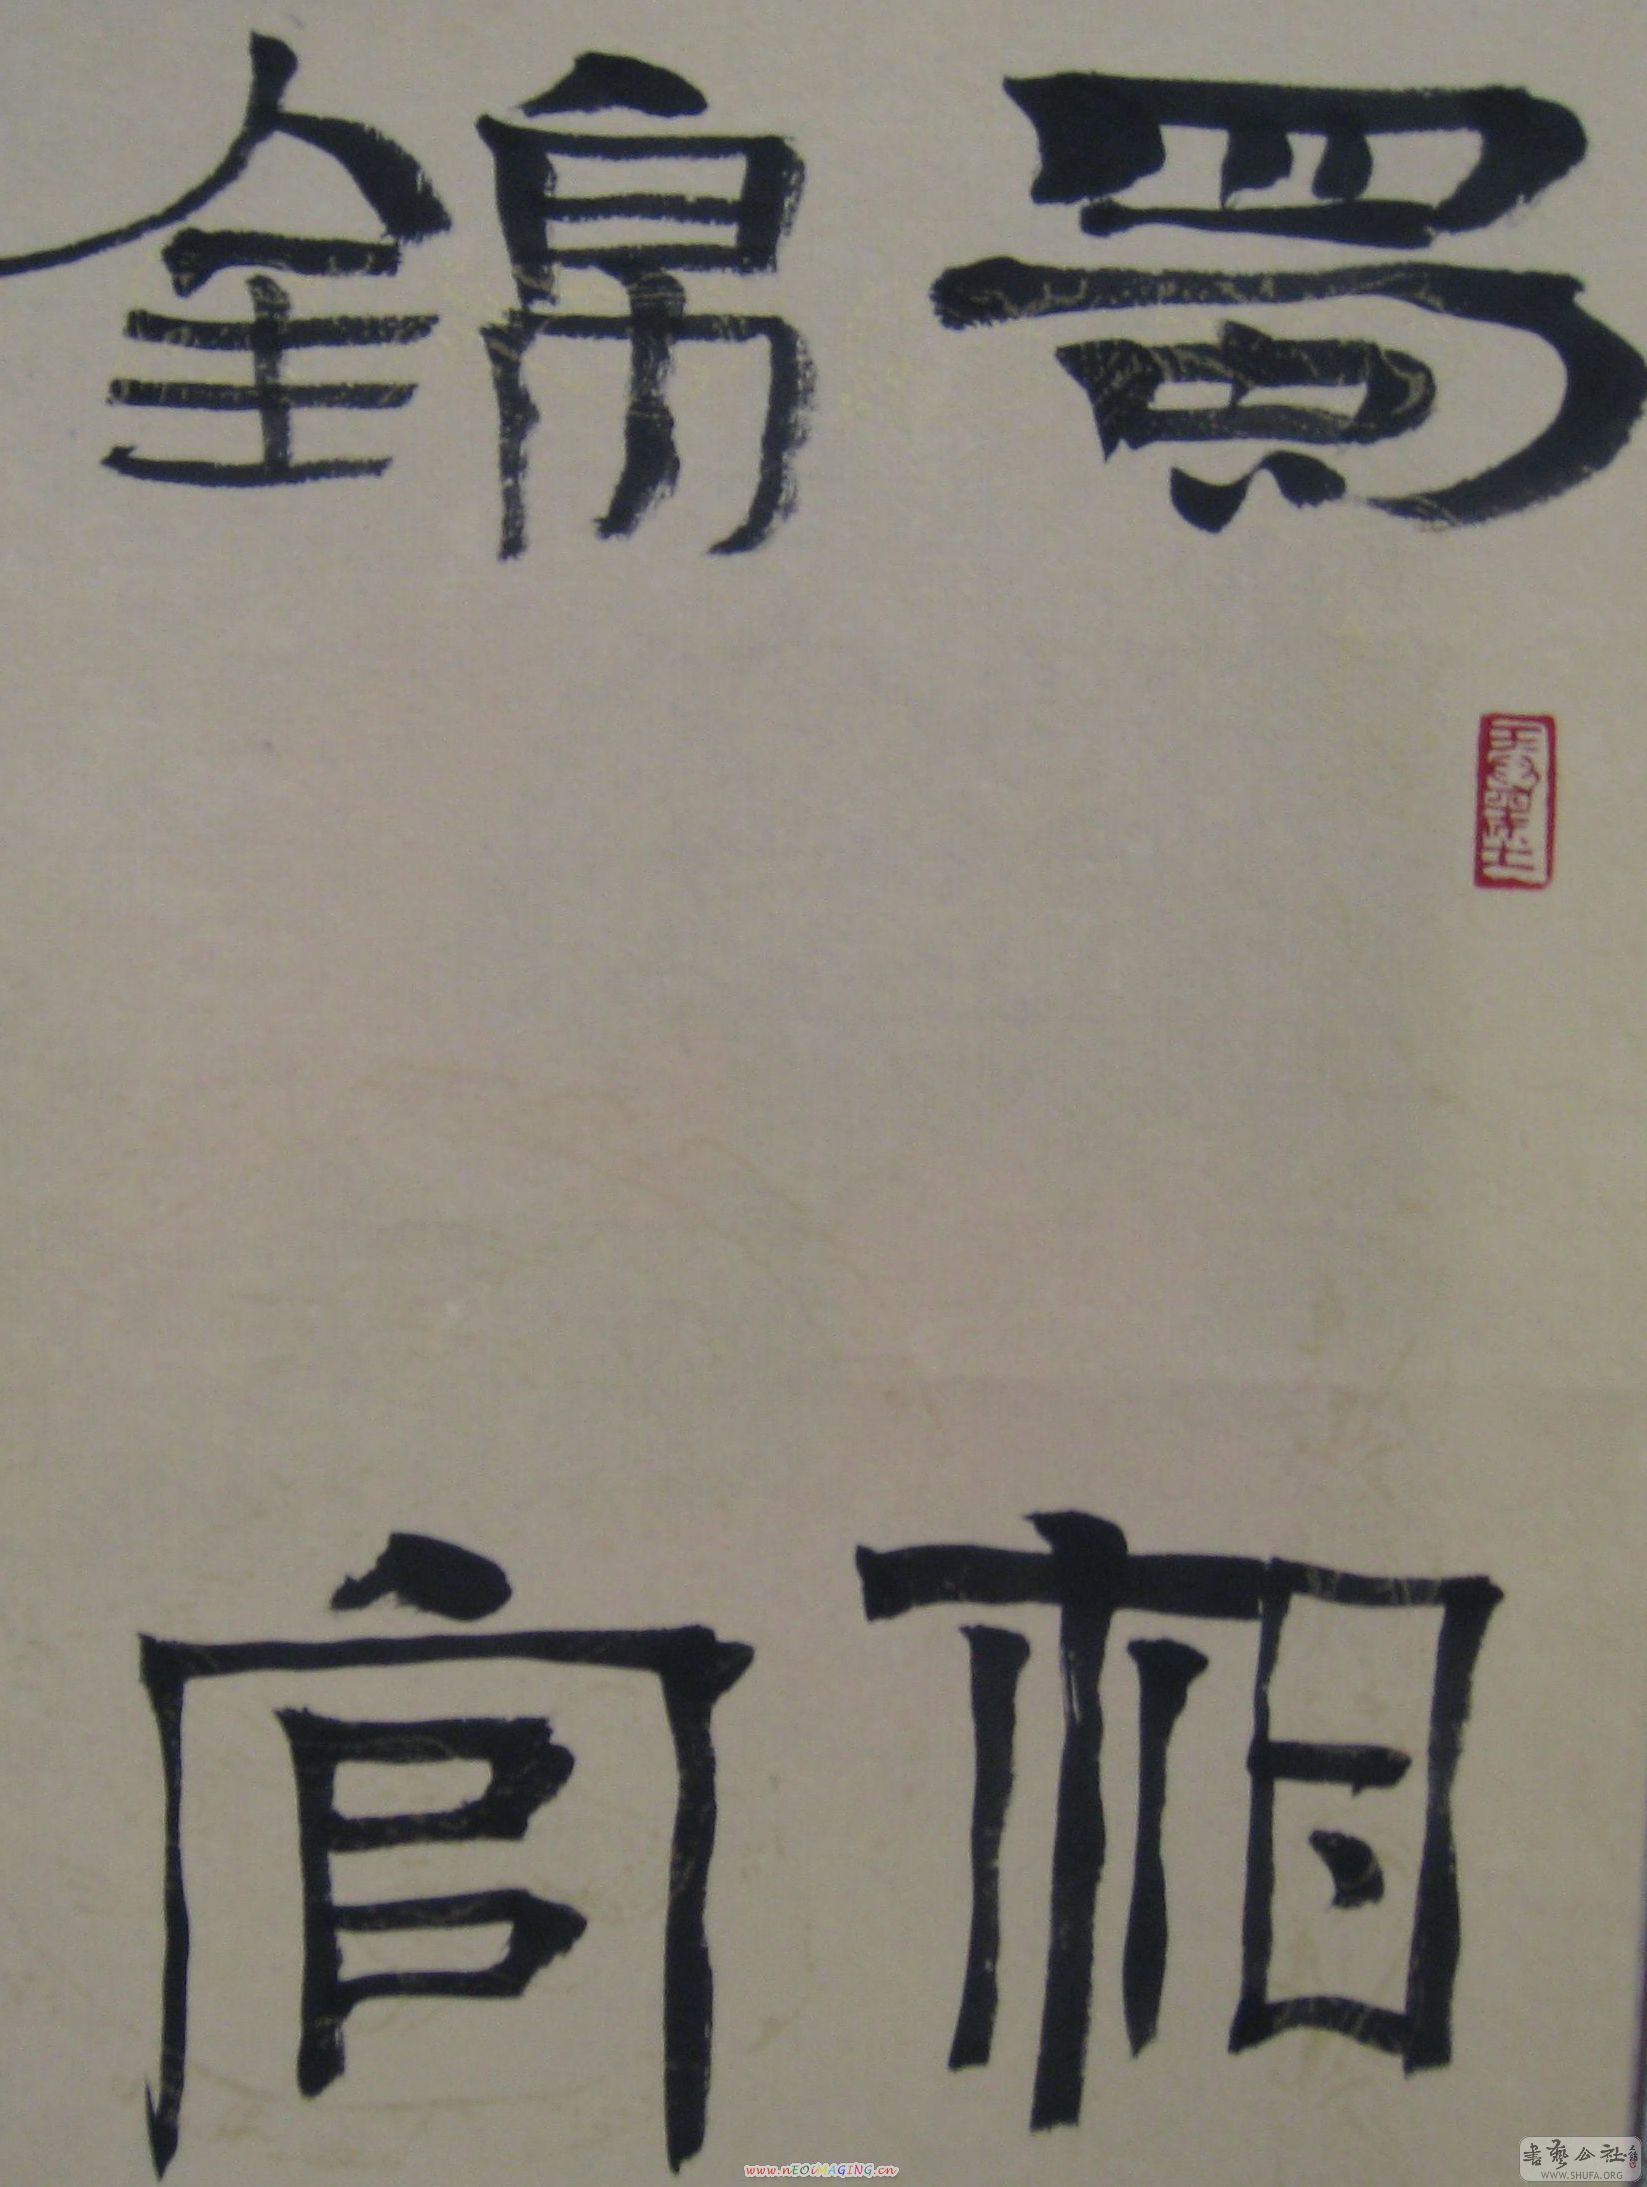 蜀相
錦官
www.nEOiMAGiNG.cn
書藝公社
WWW.SHUFA.ORG